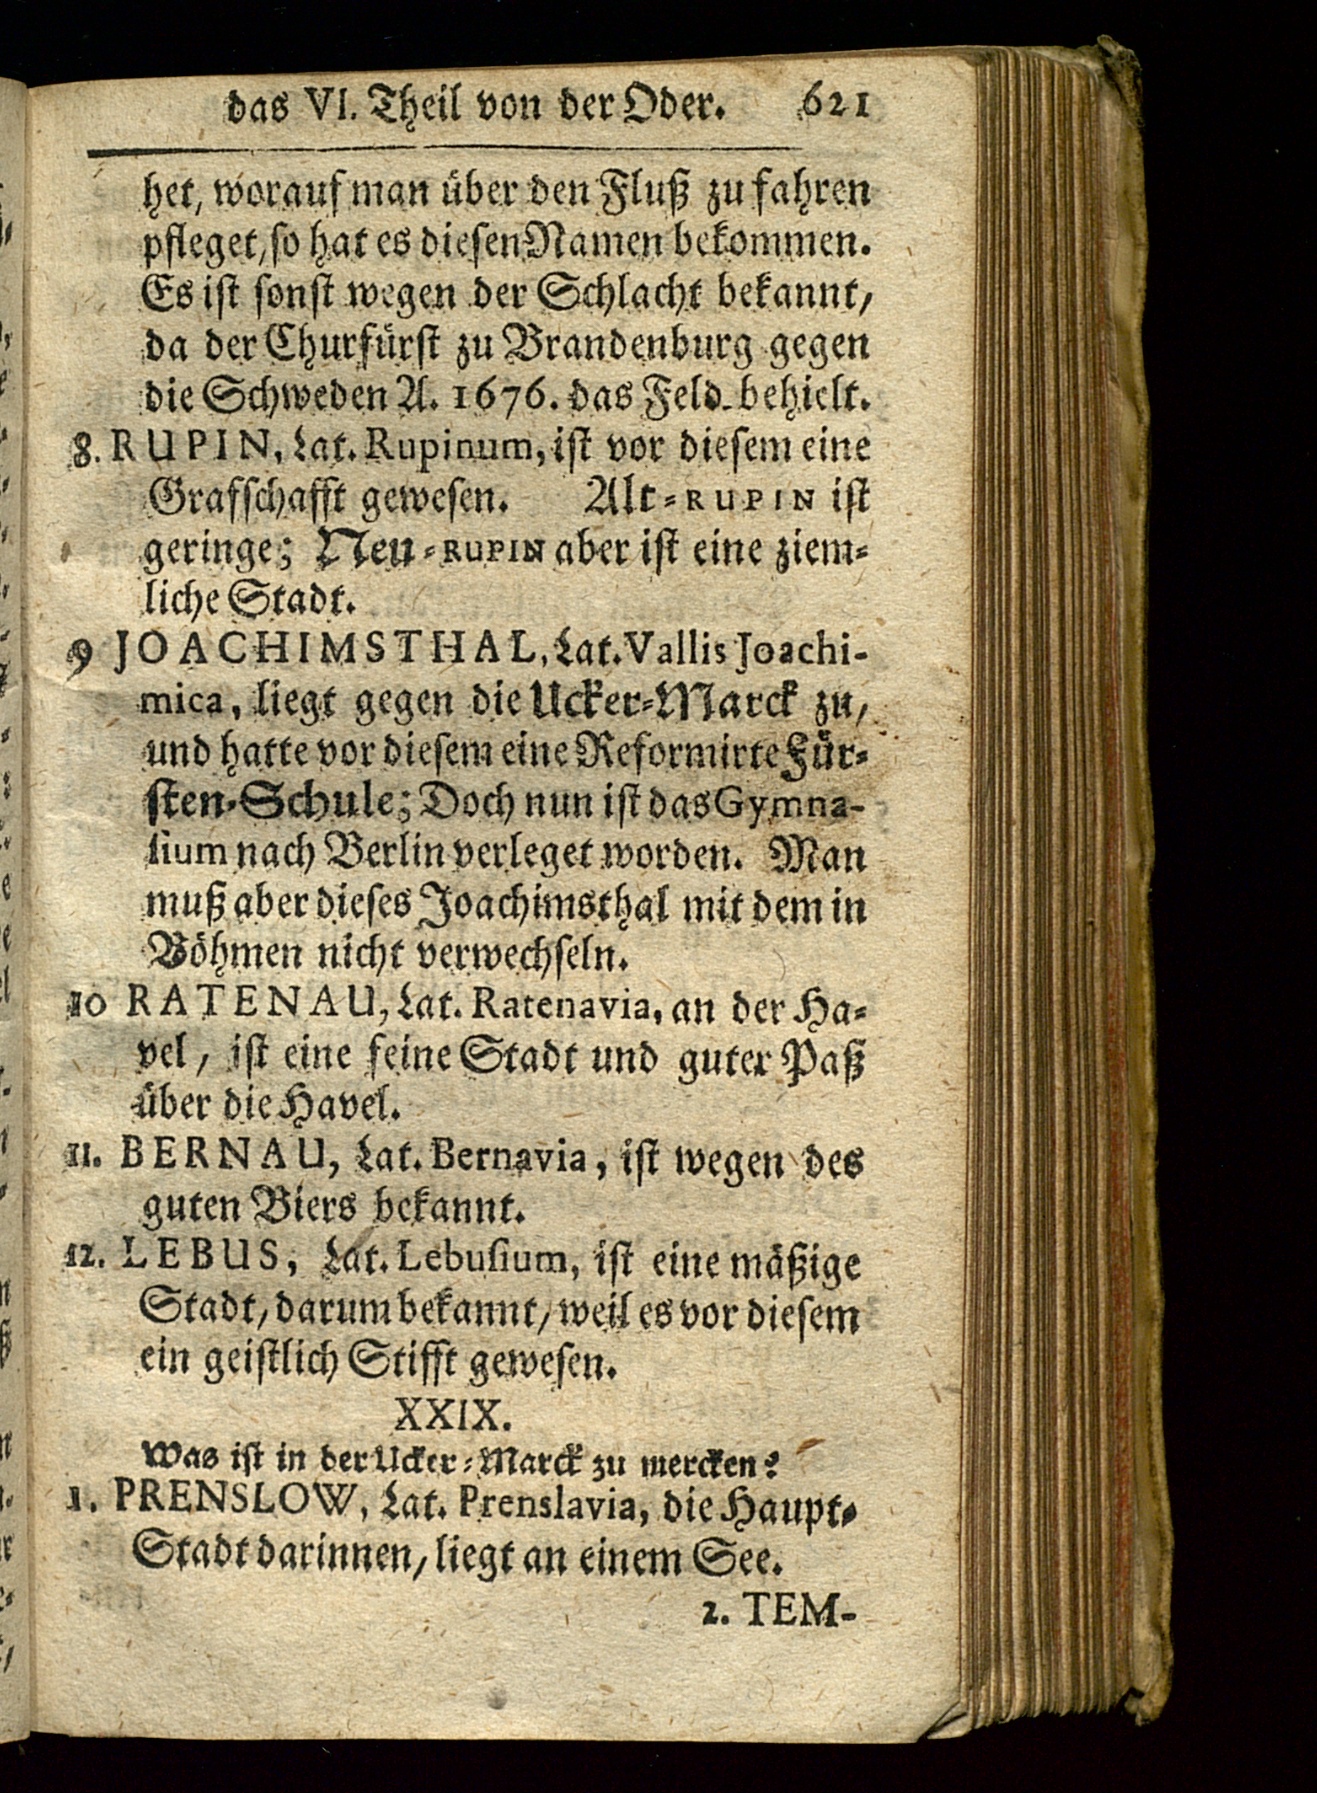 das VI. Theil von der Oder. 621
het, worauf man über den Fluß zu fahren
pfleget, so hat es diesen Namen bekommen.
Es ist sonst wegen der Schlacht bekannt,
da der Churfürst zu Brandenburg gegen
die Schweden A. 1676. das Feld behielt.
8. RUPIN, Lat. Rupinum, ist vor diesem eine
Grafschafft gewesen. Alt-RUPIN ist
geringe; Neu-RUPIN aber ist eine ziem-
liche Stadt.
9 JOACHIMSTHAL, Lat. Vallis Joachi-
mica, liegt gegen die Ucker-Marck zu,
und hatte vor diesem eine Reformirte Für-
sten-Schule; Doch nun ist das Gymna-
sium nach Berlin verleget worden. Man
muß aber dieses Joachimsthal mit dem in
Böhmen nicht verwechseln.
10 RATENAU, Lat. Ratenavia, an der Ha-
vel, ist eine feine Stadt und guter Paß
über die Havel.
11. BERNAU, Lat. Bernavia, ist wegen des
guten Biers bekannt.
12. LEBUS, Lat. Lebusium, ist eine mäßige
Stadt, darum bekannt, weil es vor diesem
ein geistlich Stifft gewesen.
XXIX.
Was ist in der Ucker-Marck zu mercken?
1. PRENSLOW, Lat. Prenslavia, die Haupt-
Stadt darinnen, liegt an einem See.
2. TEM-